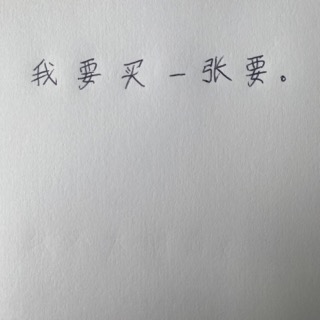 我要买一张要。